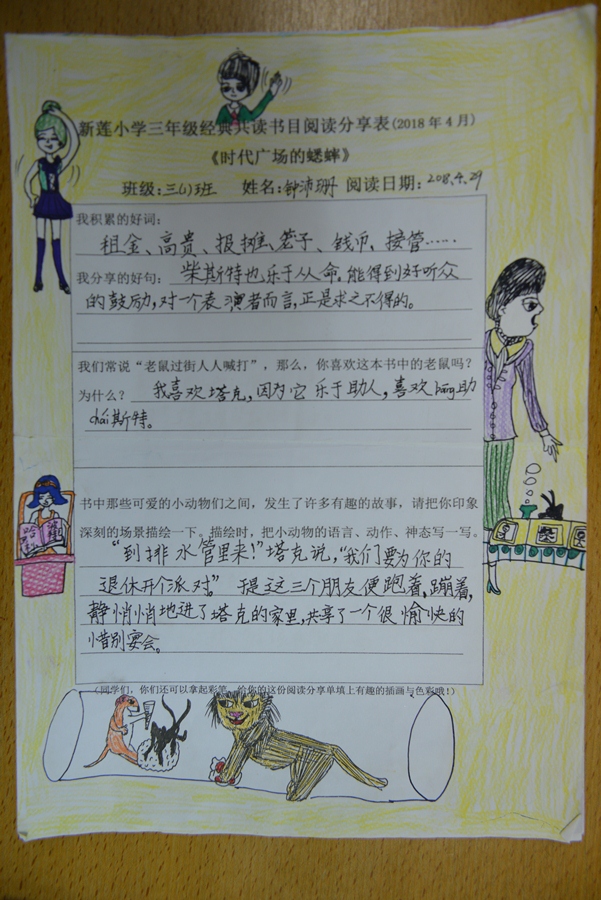 新莲小学三年级经典共读书目阅读分享表(2018年4月)
《时代广场的蟋蟀》
班级:三(1)班 姓名:钟沛珊 阅读日期:2018.4.29
我积累的好词:
租金、高贵、报摊、笼子、钱币、接管……
我分享的好句:柴斯特也乐于从命,能得到好听众
的鼓励,对一个表演者而言,正是求之不得的。
我们常说“老鼠过街人人喊打”,那么,你喜欢这本书中的老鼠吗?
为什么? 我喜欢塔克,因为它乐于助人,喜欢bāng助
chái斯特。
书中那些可爱的小动物们之间,发生了许多有趣的故事,请把你印象
深刻的场景描绘一下。描绘时,把小动物的语言、动作、神态写一写。
“到排水管里来!”塔克说,“我们要为你的
退休开个派对。”于是这三个朋友便跑着,蹦着,
静悄悄地进了塔克的家里,共享了一个很愉快的
惜别宴会。
(同学们,你们还可以拿起彩笔,给你的这份阅读分享单填上有趣的插画与色彩哦!)